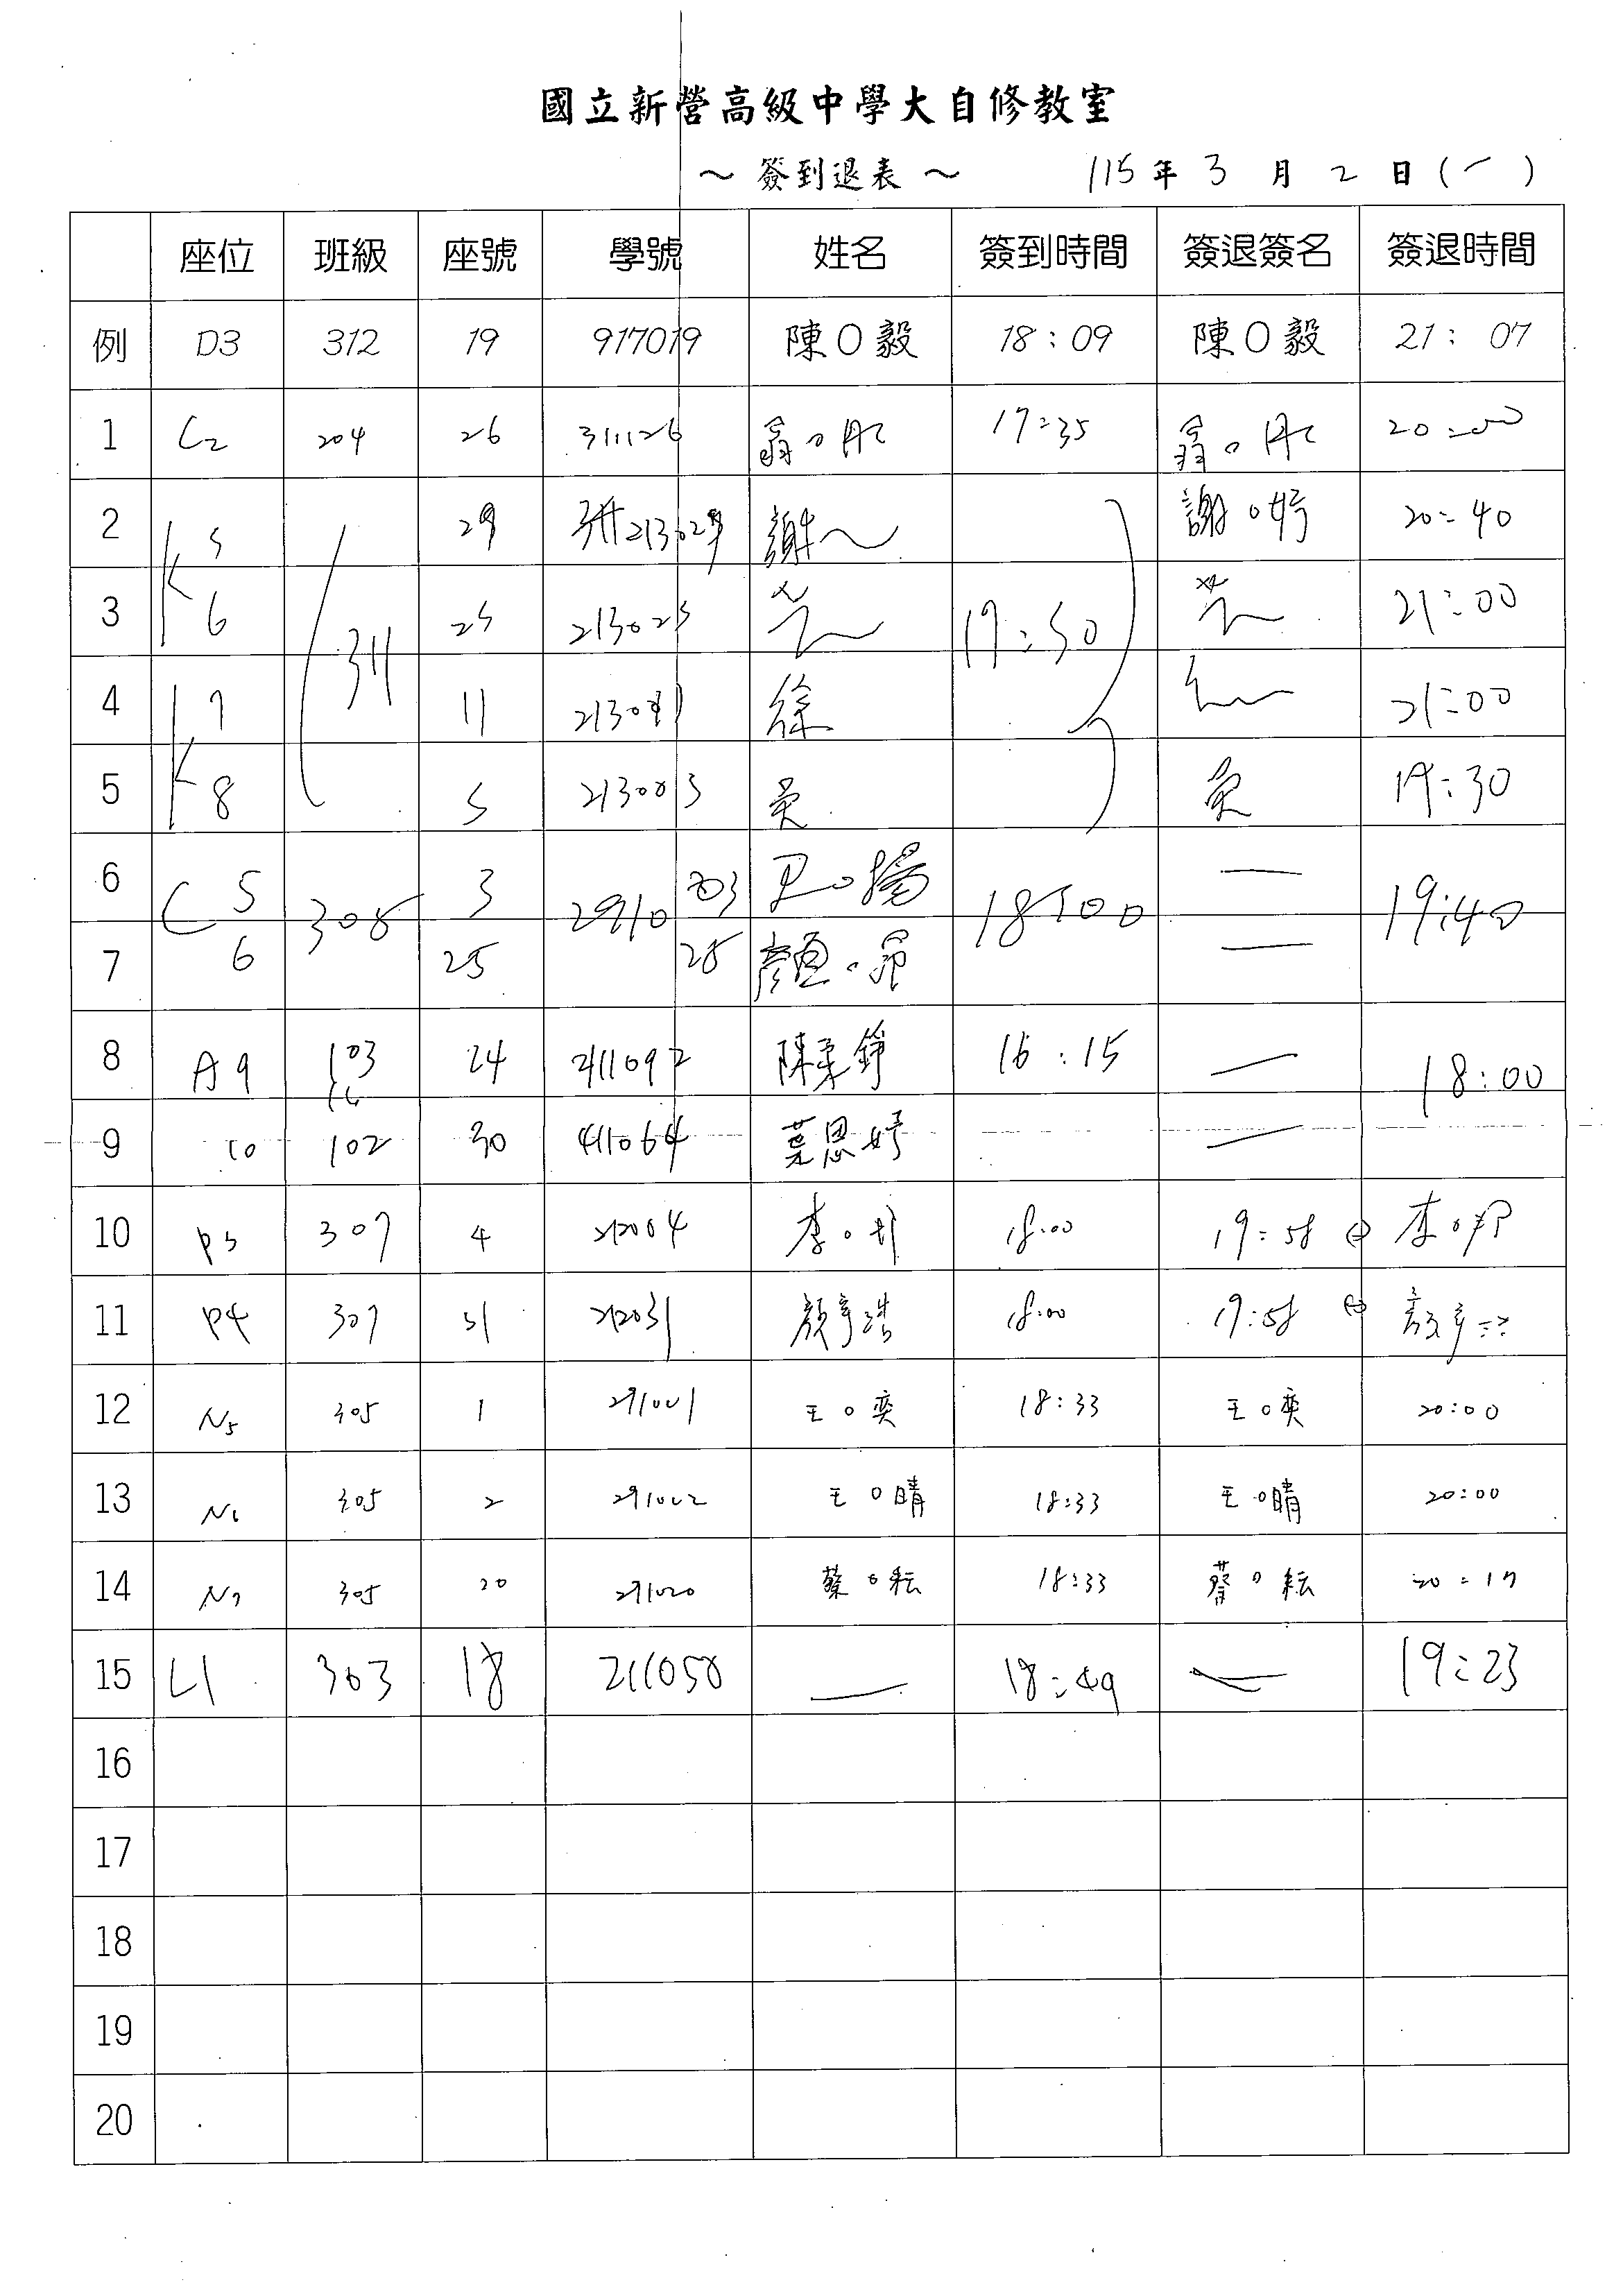 國立新營高級中學大自修教室
～ 簽到退表 ～ 115 年 3 月 2 日 (一)
座位 班級 座號 學號 姓名 簽到時間 簽退簽名 簽退時間
例 D3 312 19 917019 陳O毅 18:09 陳O毅 21:07
1 C2 204 26 311126 翁O 17:35 翁O 20:00
2 K5 29 213029 謝 謝O婷 20:40
3 6 311 25 213025 黃 17:50 21:00
4 K7 11 213011 徐 21:00
5 K8 5 213005 吳 吳 19:30
6 C5 308 3 2910 03 O揚 18:00 19:40
7 6 25 25 顏O
8 A9 103 24 211092 陳柔錚 16:15 18:00
9 10 102 30 411064 葉恩妤
10 P5 307 4 212004 李O 18:00 19:58 李O
11 P4 307 31 212031 顏 18:00 19:58 顏
12 N5 305 1 291001 王O奕 18:33 王O奕 20:00
13 N6 305 2 291002 王O晴 18:33 王O晴 20:00
14 N7 305 20 291020 蔡O耘 18:33 蔡O耘 20:17
15 L1 303 18 211050 18:49 19:23
16
17
18
19
20